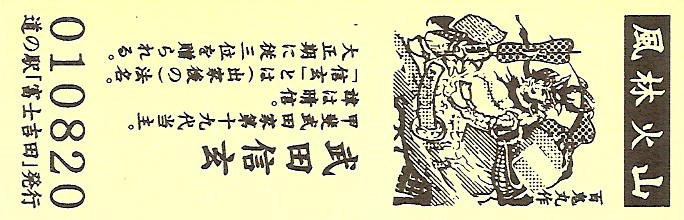 風林火山
百鬼丸作
武田信玄
甲斐武田家第十九代当主。
諱は晴信。
「信玄」とは(出家後の)法名。
大正期に従三位を贈られる。
010820
道の駅「富士吉田」発行